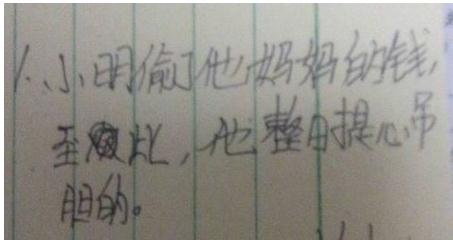 1.、小明偷了他妈妈的钱,
至此,他整日提心吊
胆的。